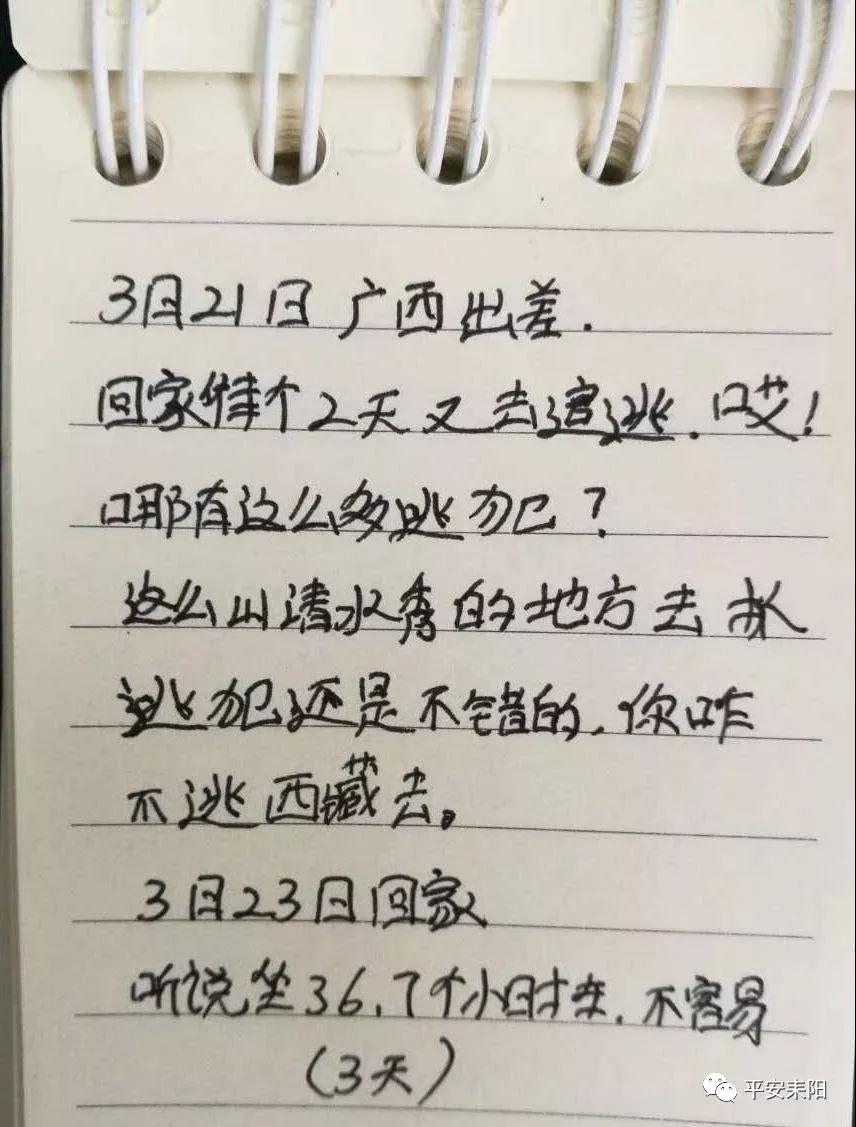 3月21日 广西出差.
回家待个2天又去追逃.哎!
哪有这么多逃犯?
这么山清水秀的地方去抓
逃犯还是不错的.你咋
不逃西藏去。
3月23日回家
听说坐36.7个小时车.不容易
(3天)
平安耒阳